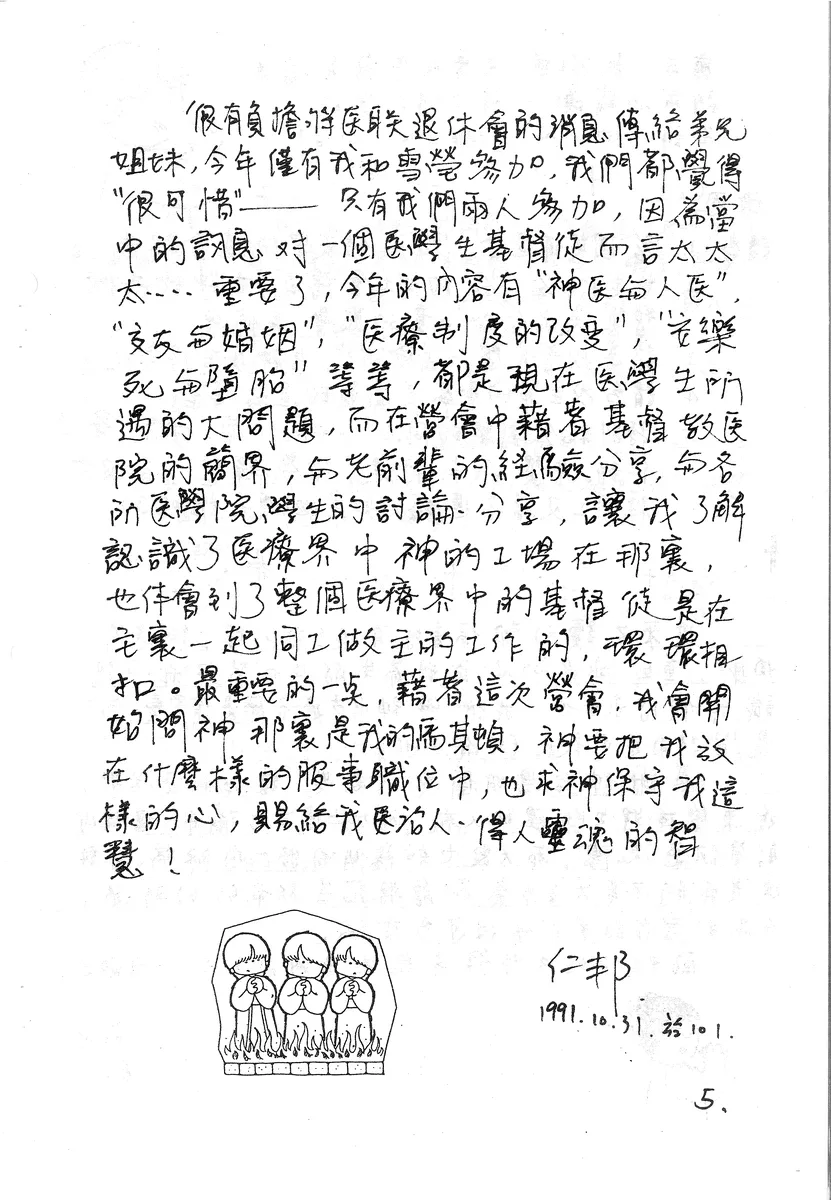 很有負擔將医联退休會的消息傳給弟兄
姐妹，今年僅有我和雪瑩參加，我們都覺得
"很可惜"——只有我們兩人參加，因為當
中的訊息对一個医學生基督徒而言太太
太‥‥重要了，今年的內容有"神医与人医"，
"交友与婚姻"，"医療制度的改变"，"安樂
死与墮胎"等等，都是現在医學生所
遇的大問題，而在營會中藉著基督教医
院的簡界，与老前輩的経驗分享，与各
所医學院學生的討論、分享，讓我了解
認識了医療界中神的工場在那裏，
也体會到了整個医療界中的基督徒是在
主裏一起同工做主的工作的，環環相
扣。最重要的一点，藉著這次營會，我會開
始問神那裏是我的馬其頓，神要把我放
在什麼樣的服事職位中，也求神保守我這
樣的心，賜給我医治人、得人靈魂的智
慧！
仁邦
1991.10.31.於101.
5.